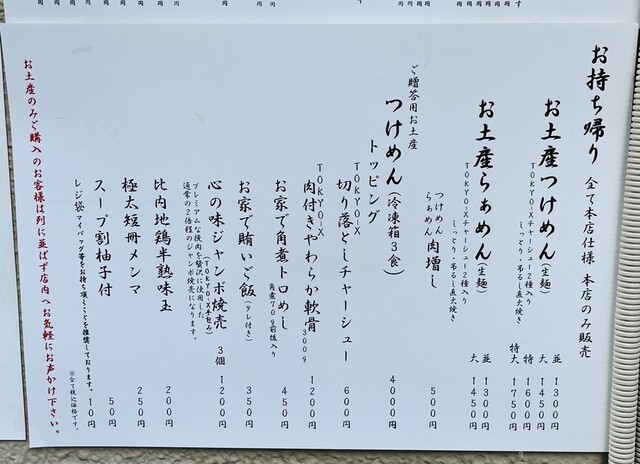 お持ち帰り 全て本店仕様 本店のみ販売
お土産つけめん(生麺)
TOKYO:Xチャーシュー2種入り
しっとり・吊るし直火焼き
並 1300円
大 1450円
特 1600円
特大 1750円
お土産らぁめん(生麺)
TOKYO:Xチャーシュー2種入り
しっとり・吊るし直火焼き
並 1300円
大 1450円
つけめん
らぁめん 肉増し 500円
ご贈答用お土産
つけめん(冷凍箱3食) 4000円
トッピング
TOKYO-X
切り落としチャーシュー 600円
TOKYO-X
肉付きやわらか軟骨 300g 1200円
お家で角煮トロめし 450円
角煮70g前後入り
お家で賄いご飯(タレ付き) 350円
心の味ジャンボ焼売 3個 1200円
(TOKYO-X手包み)
プレミアムな挽肉を贅沢に使用した
通常の2倍程のジャンボ焼売になります。
比内地鶏半熟味玉 200円
極太短冊メンマ 250円
スープ割柚子付 50円
レジ袋 マイバッグ等をお持ち頂くことを推奨しております。 10円
※全て税込価格です。
お土産のみご購入のお客様は列に並ばず店内へお気軽にお声かけ下さい。